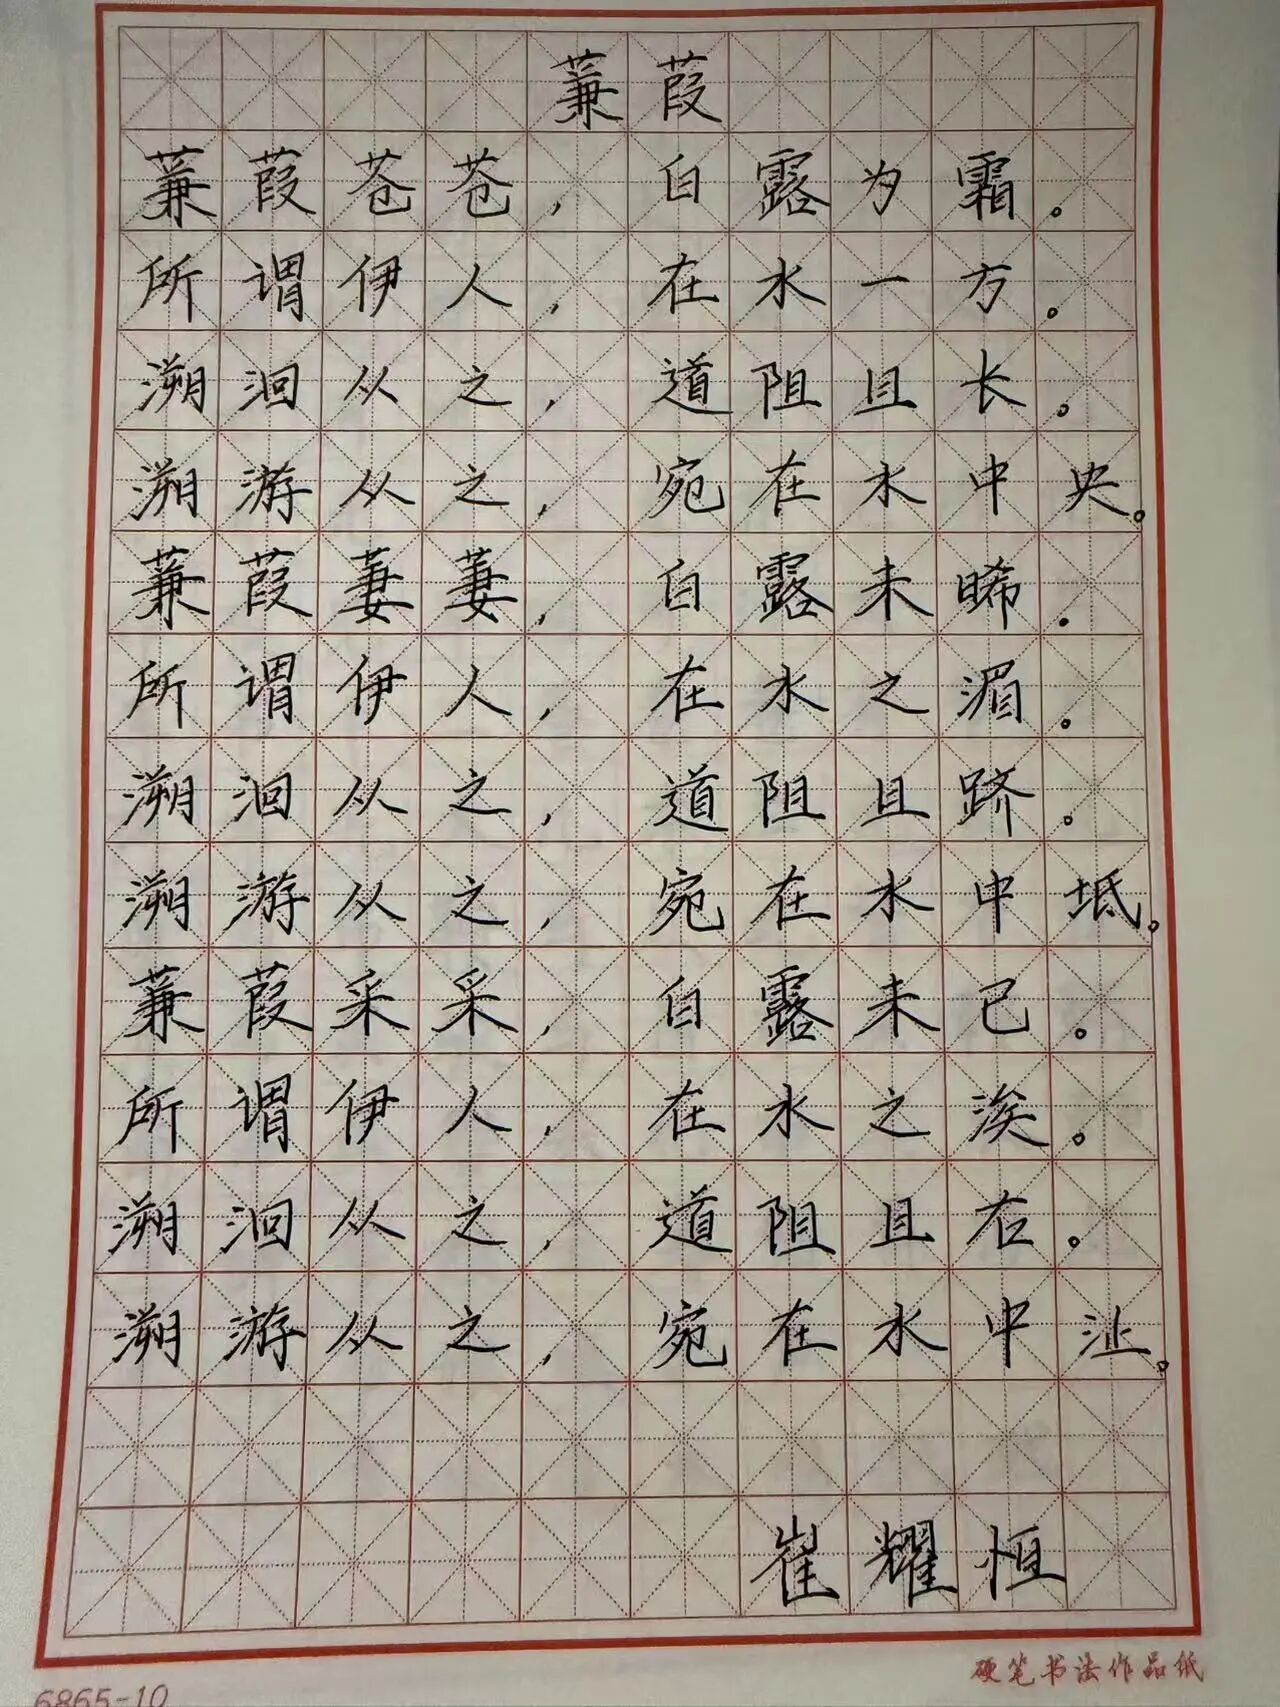 蒹葭
蒹葭苍苍，白露为霜。
所谓伊人，在水一方。
溯洄从之，道阻且长。
溯游从之，宛在水中央。
蒹葭萋萋，白露未晞。
所谓伊人，在水之湄。
溯洄从之，道阻且跻。
溯游从之，宛在水中坻。
蒹葭采采，白露未已。
所谓伊人，在水之涘。
溯洄从之，道阻且右。
溯游从之，宛在水中沚。
崔耀恒
硬笔书法作品纸
6865-10